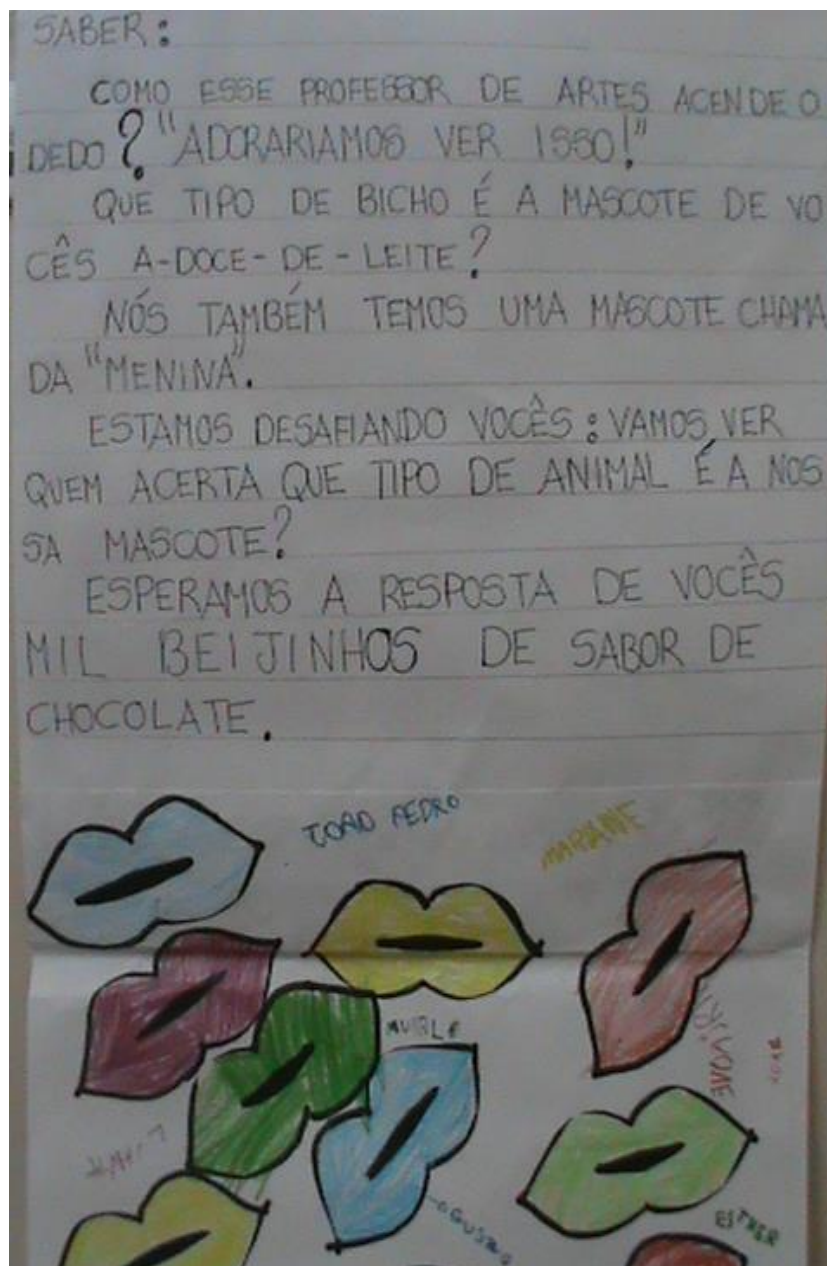 SABER:
COMO ESSE PROFESSOR DE ARTES ACENDE O
DEDO? "ADORARIAMOS VER ISSO!"
QUE TIPO DE BICHO É A MASCOTE DE VO
CÊS A-DOCE-DE-LEITE?
NÓS TAMBÉM TEMOS UMA MASCOTE CHAMA
DA "MENINA".
ESTAMOS DESAFIANDO VOCÊS: VAMOS VER
QUEM ACERTA QUE TIPO DE ANIMAL É A NOS
SA MASCOTE?
ESPERAMOS A RESPOSTA DE VOCÊS
MIL BEIJINHOS DE SABOR DE
CHOCOLATE.
JOAO PEDRO
ESTHER